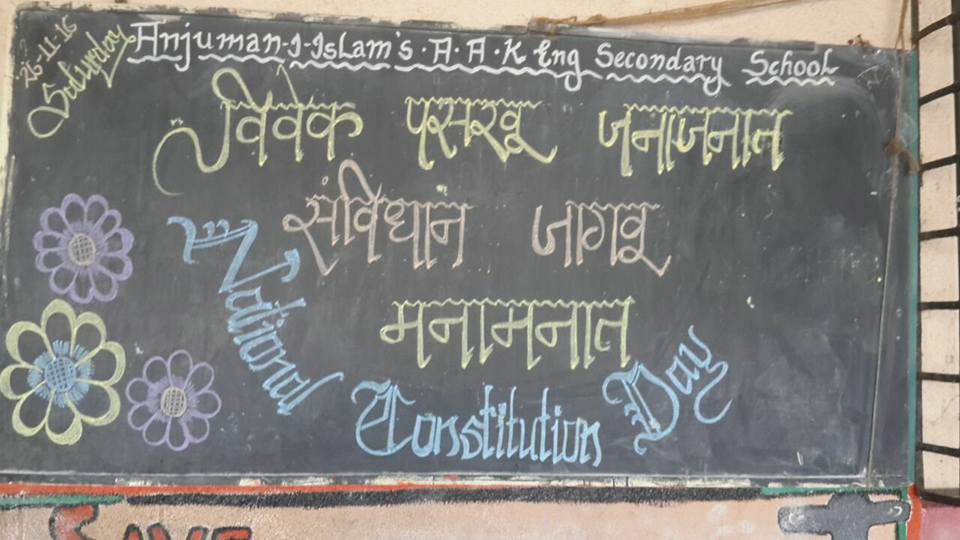 26-11-16
Saturday
Anjuman-I-Islam's. A. A. K Eng Secondary School
विवेक पसरवू जनाजनात
संविधान जागवू
मनामनात
National Constitution Day
SAVE